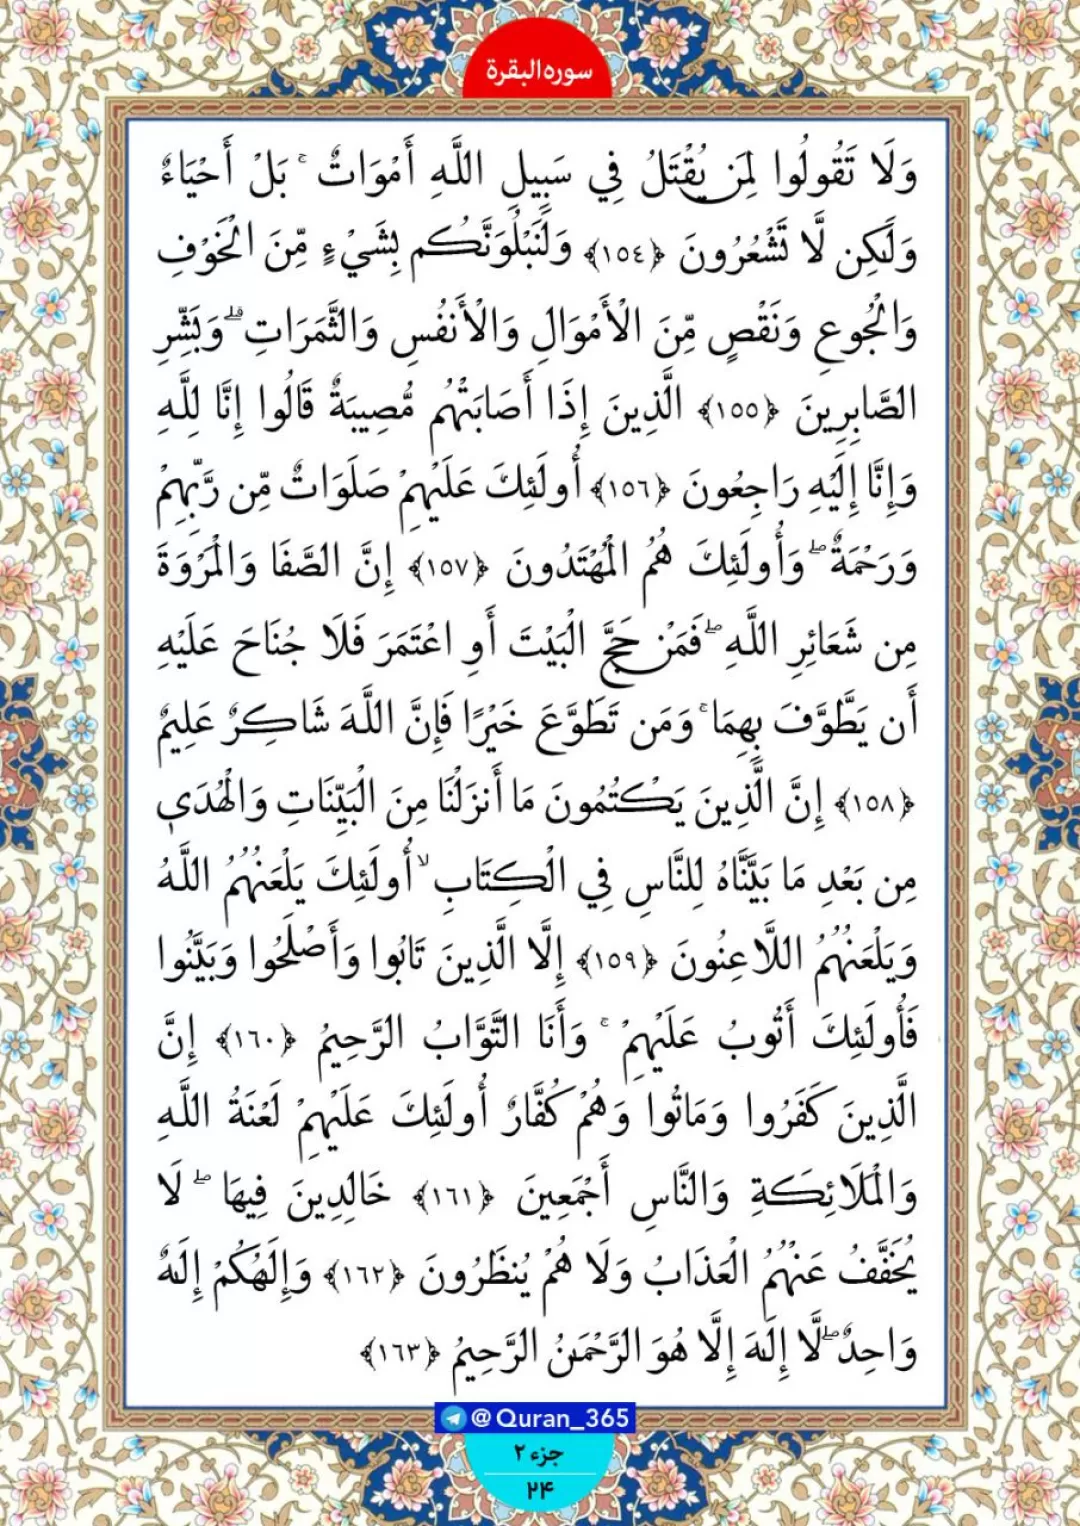 سوره البقرة
وَلَا تَقُولُوا لِمَن يُقْتَلُ فِي سَبِيلِ اللَّهِ أَمْوَاتٌ ۚ بَلْ أَحْيَاءٌ
وَلَٰكِن لَّا تَشْعُرُونَ ﴿١٥٤﴾ وَلَنَبْلُوَنَّكُم بِشَيْءٍ مِّنَ الْخَوْفِ
وَالْجُوعِ وَنَقْصٍ مِّنَ الْأَمْوَالِ وَالْأَنفُسِ وَالثَّمَرَاتِ ۗ وَبَشِّرِ
الصَّابِرِينَ ﴿١٥٥﴾ الَّذِينَ إِذَا أَصَابَتْهُم مُّصِيبَةٌ قَالُوا إِنَّا لِلَّهِ
وَإِنَّا إِلَيْهِ رَاجِعُونَ ﴿١٥٦﴾ أُولَٰئِكَ عَلَيْهِمْ صَلَوَاتٌ مِّن رَّبِّهِمْ
وَرَحْمَةٌ ۖ وَأُولَٰئِكَ هُمُ الْمُهْتَدُونَ ﴿١٥٧﴾ إِنَّ الصَّفَا وَالْمَرْوَةَ
مِن شَعَائِرِ اللَّهِ ۖ فَمَنْ حَجَّ الْبَيْتَ أَوِ اعْتَمَرَ فَلَا جُنَاحَ عَلَيْهِ
أَن يَطَّوَّفَ بِهِمَا ۚ وَمَن تَطَوَّعَ خَيْرًا فَإِنَّ اللَّهَ شَاكِرٌ عَلِيمٌ
﴿١٥٨﴾ إِنَّ الَّذِينَ يَكْتُمُونَ مَا أَنزَلْنَا مِنَ الْبَيِّنَاتِ وَالْهُدَىٰ
مِن بَعْدِ مَا بَيَّنَّاهُ لِلنَّاسِ فِي الْكِتَابِ ۙ أُولَٰئِكَ يَلْعَنُهُمُ اللَّهُ
وَيَلْعَنُهُمُ اللَّاعِنُونَ ﴿١٥٩﴾ إِلَّا الَّذِينَ تَابُوا وَأَصْلَحُوا وَبَيَّنُوا
فَأُولَٰئِكَ أَتُوبُ عَلَيْهِمْ ۚ وَأَنَا التَّوَّابُ الرَّحِيمُ ﴿١٦٠﴾ إِنَّ
الَّذِينَ كَفَرُوا وَمَاتُوا وَهُمْ كُفَّارٌ أُولَٰئِكَ عَلَيْهِمْ لَعْنَةُ اللَّهِ
وَالْمَلَائِكَةِ وَالنَّاسِ أَجْمَعِينَ ﴿١٦١﴾ خَالِدِينَ فِيهَا ۖ لَا
يُخَفَّفُ عَنْهُمُ الْعَذَابُ وَلَا هُمْ يُنظَرُونَ ﴿١٦٢﴾ وَإِلَٰهُكُمْ إِلَٰهٌ
وَاحِدٌ ۖ لَّا إِلَٰهَ إِلَّا هُوَ الرَّحْمَٰنُ الرَّحِيمُ ﴿١٦٣﴾
@Quran_365
جزء ۲
۲۴